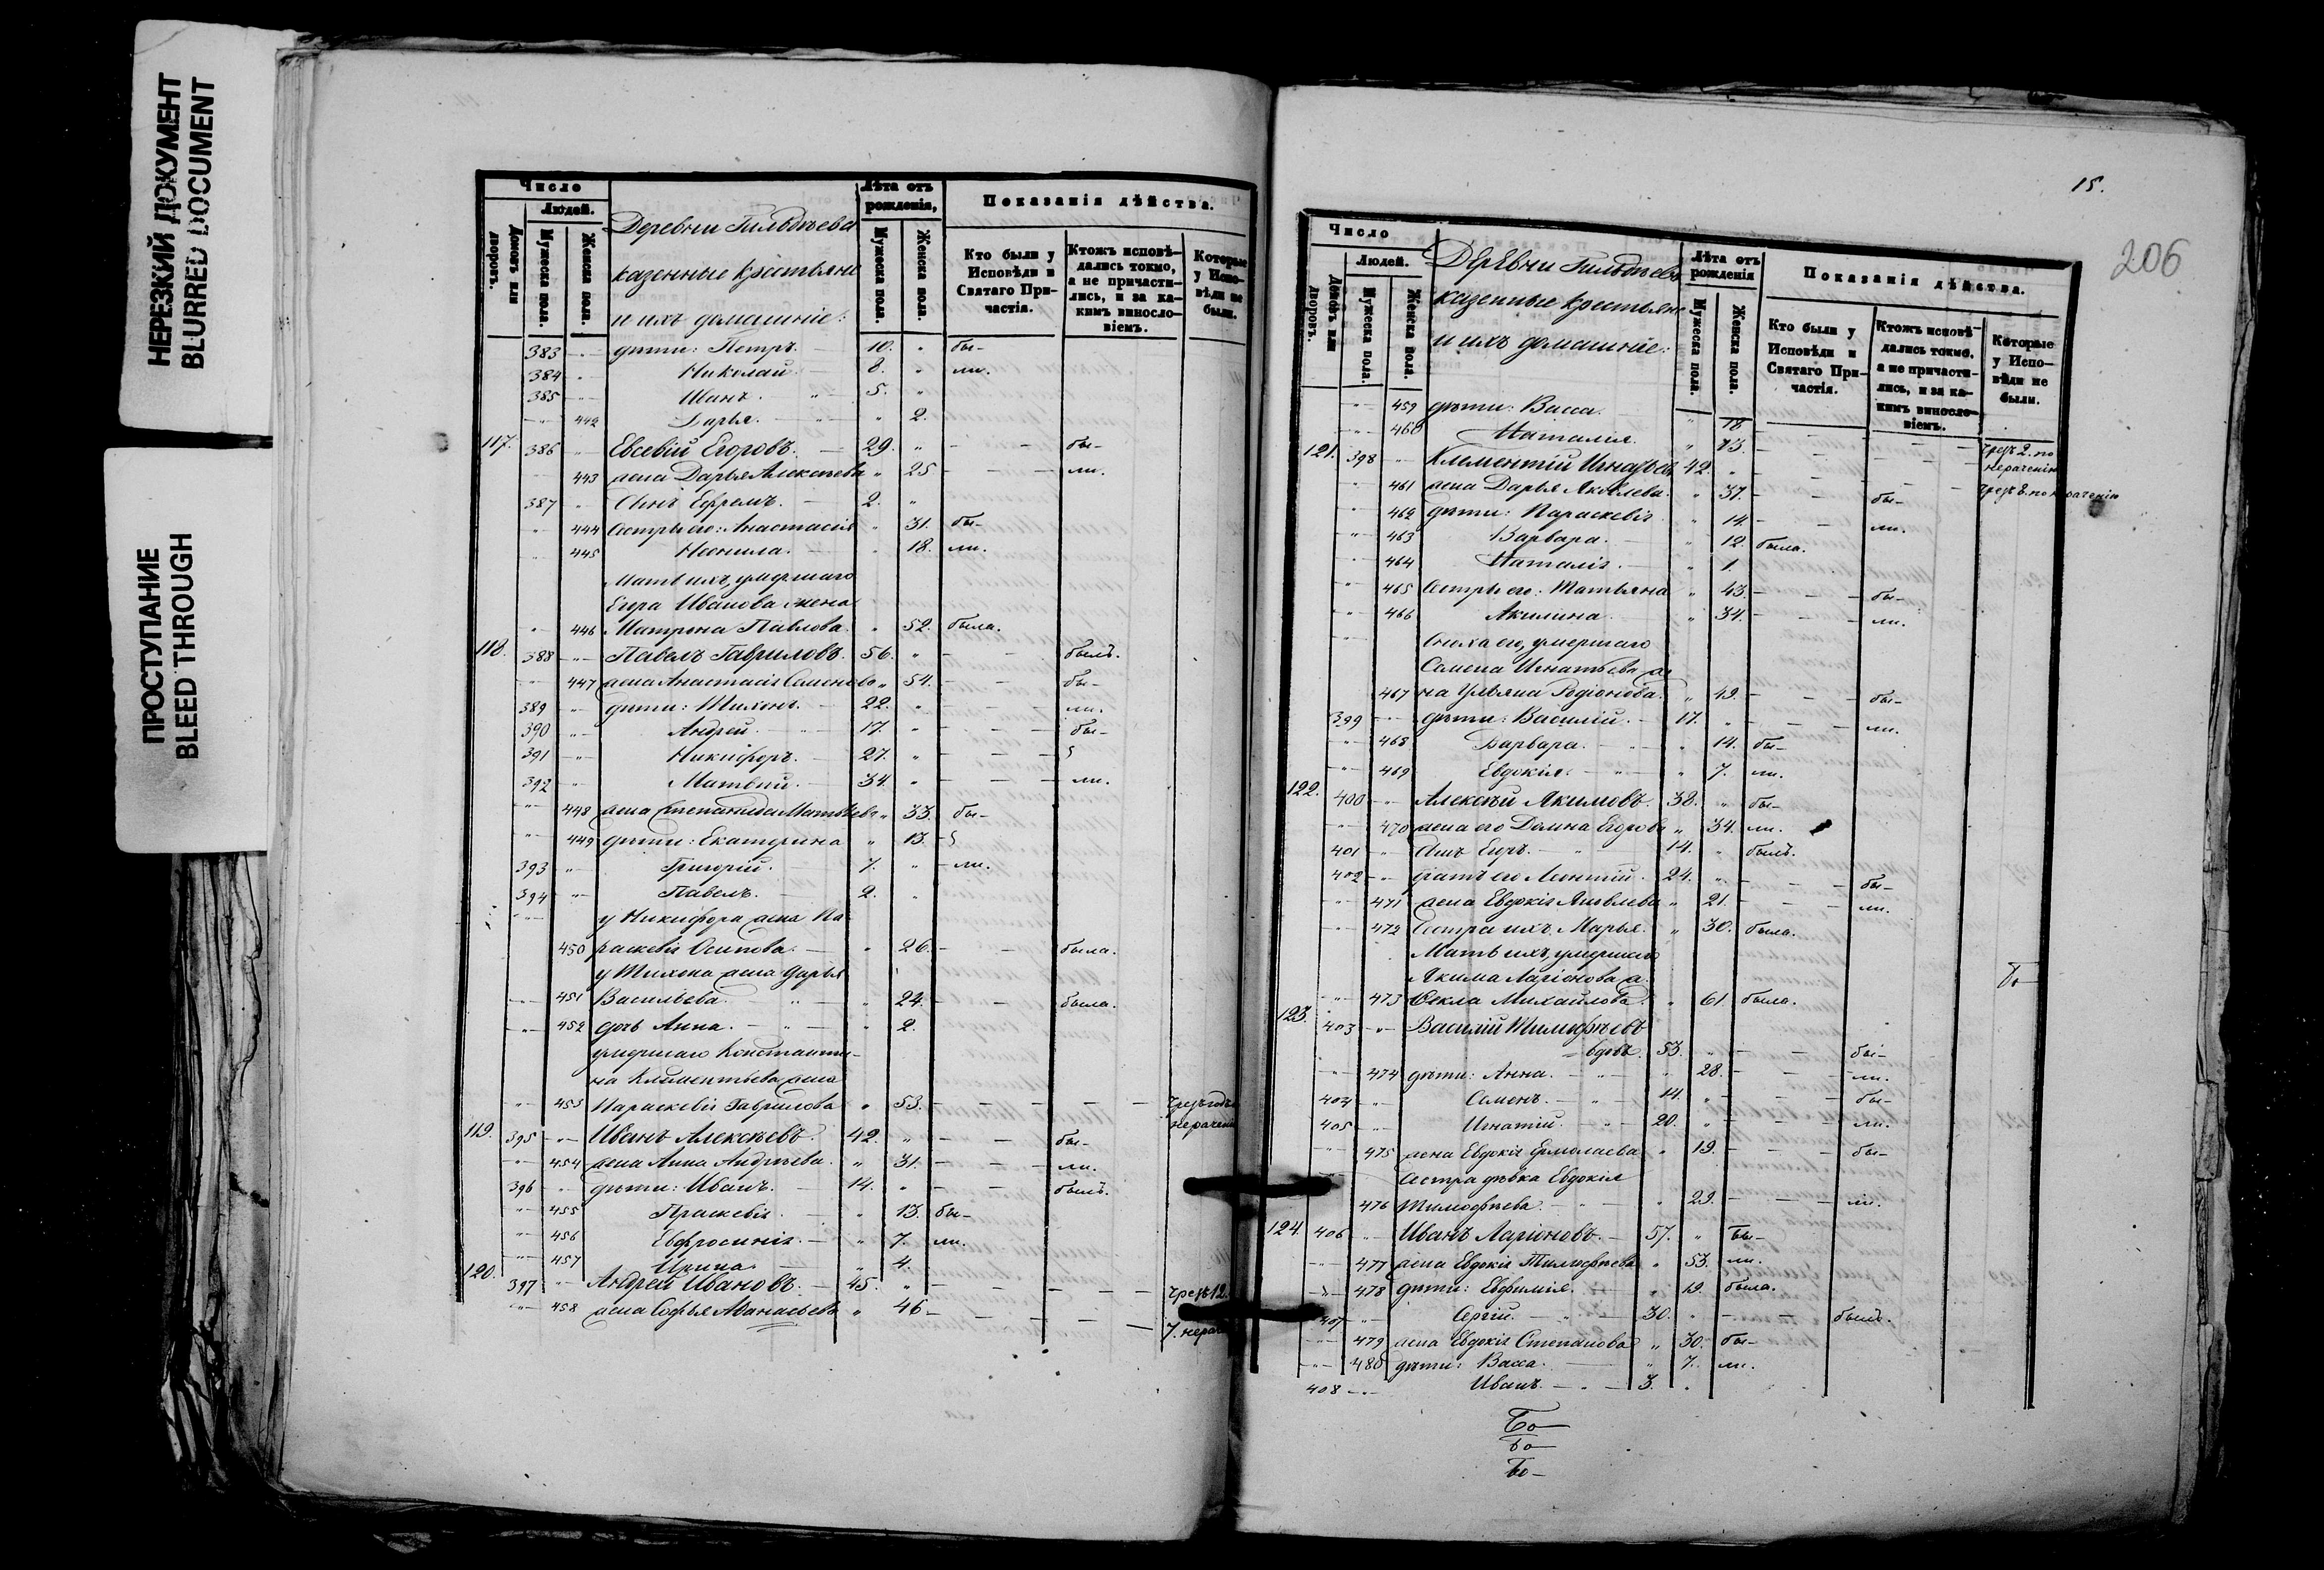 НЕРЕЗКИЙ ДОКУМЕНТ
BLURRED DOCUMENT
ПРОСТУПАНИЕ
BLEED THROUGH
Число
Людей.
Домовъ или дворовъ.
Мужеска пола.
Женска пола.
Деревни Гильдѣева
казенные крестьяне
и ихъ домашніе:
Лѣта отъ рожденія,
Мужеска пола.
Женска пола.
Показанія дѣйства.
Кто были у Исповѣди и Святаго Причастія.
Ктожъ исповѣдались токмо, а не причастились, и за какимъ винословіемъ.
Которые у Исповѣди не были.
383 дѣти: Петръ. 10. бы-
384 Николай 8. ли.
385 Иванъ. 5.
442 Дарья. 2.
117. 386 Евсевій Егоровъ. 29. бы-
443 жена Дарья Алексѣева 25 ли.
387 Сынъ Ефремъ. 2.
444 Сестры его: Анастасія 31. бы-
445 Неонила. 18. ли.
Мать ихъ, умершаго
Егора Иванова жена
446 Матрона Павлова. 52. была.
118. 388 Павелъ Гавриловъ. 56. былъ.
447 жена Анастасія Семенова 54. бы-
389 дѣти: Тихонъ. 22. ли.
390 Андрей. 17. бы-
391 Никифоръ. 27.
392 Матвѣй. 34. ли.
448 жена Степанида Матвѣева 33. бы-
449 дѣти: Екатерина 13.
393 Григорій. 7. ли.
394 Павелъ. 2.
у Никифора жена Па-
450 раскевія Осипова. 26. была.
у Тихона жена Дарья
451 Васильева. 24. была.
452 дочь Анна. 2.
умершаго Константи-
на Климентьева жена
453 Параскевія Гаврилова 53.
119. 395 Иванъ Алексѣевъ. 42. бы-
454 жена Анна Андреева. 31. ли.
396 дѣти: Иванъ. 14. былъ.
455 Праскевія. 13. бы-
456 Евфросинія. 7. ли.
457 Ирина. 4.
120. 397 Андрей Ивановъ. 45. чрезъ 12.
458 жена Софья Аѳанасьева 46
15.
206
Число
Людей.
Домовъ или дворовъ.
Мужеска пола.
Женска пола.
Деревни Гильдѣева
казенные крестьяне
и ихъ домашніе:
Лѣта отъ рожденія
Мужеска пола.
Женска пола.
Показанія дѣйства.
Кто были у Исповѣди и Святаго Причастія.
Ктожъ исповѣдались токмо, а не причастились, и за какимъ винословіемъ.
Которые у Исповѣди не были.
459 дѣти: Васса. 18 чрезъ 2. по
460 Наталія. 13. нераченію
121. 398 Климентій Игнатьевъ 42.
461 жена Дарья Яковлева. 37. бы-
462 дѣти: Параскевія 14. ли.
463 Варвара. 12. была.
464 Наталія. 1.
465 Сестры его: Татьяна 43. бы-
466 Акилина. 34. ли.
Сноха его, умершаго
Семена Игнатьева же
467 на Ульяна Родіонова. 49. бы-
399 дѣти: Василій. 17. ли.
468 Варвара. 14. бы-
469 Евдокія. 7. ли.
122. 400 Алексѣй Акимовъ. 38. бы-
470 жена его Домна Егорова 34. ли.
401 Сынъ Егоръ. 14. былъ.
402 братъ его Леонтій. 24. бы-
471 жена Евдокія Яковлева 21. ли.
472 Сестра ихъ Марья. 30. была.
Мать ихъ, умершаго
Якима Ларіонова ж.
473 Ѳекла Михайлова. 61. была.
123. 403 Василій Тимофѣевъ
вдовъ. 53. бы-
474 дѣти: Анна. 28. ли.
404 Семенъ. 14. бы-
405 Игнатій. 20. ли.
475 жена Евдокія Ермолаева 19. бы-
Сестра дѣвка Евдокія
476 Тимофѣева. 29. ли.
124. 406 Иванъ Ларіоновъ. 57. бы-
477 жена Евдокія Тимофѣева 53. ли.
478 дѣти: Евфимія. 19. была.
407 Сергій. 30. былъ.
479 жена Евдокія Степанова 30. бы-
480 дѣти: Васса. 7. ли.
408 Иванъ. 3.